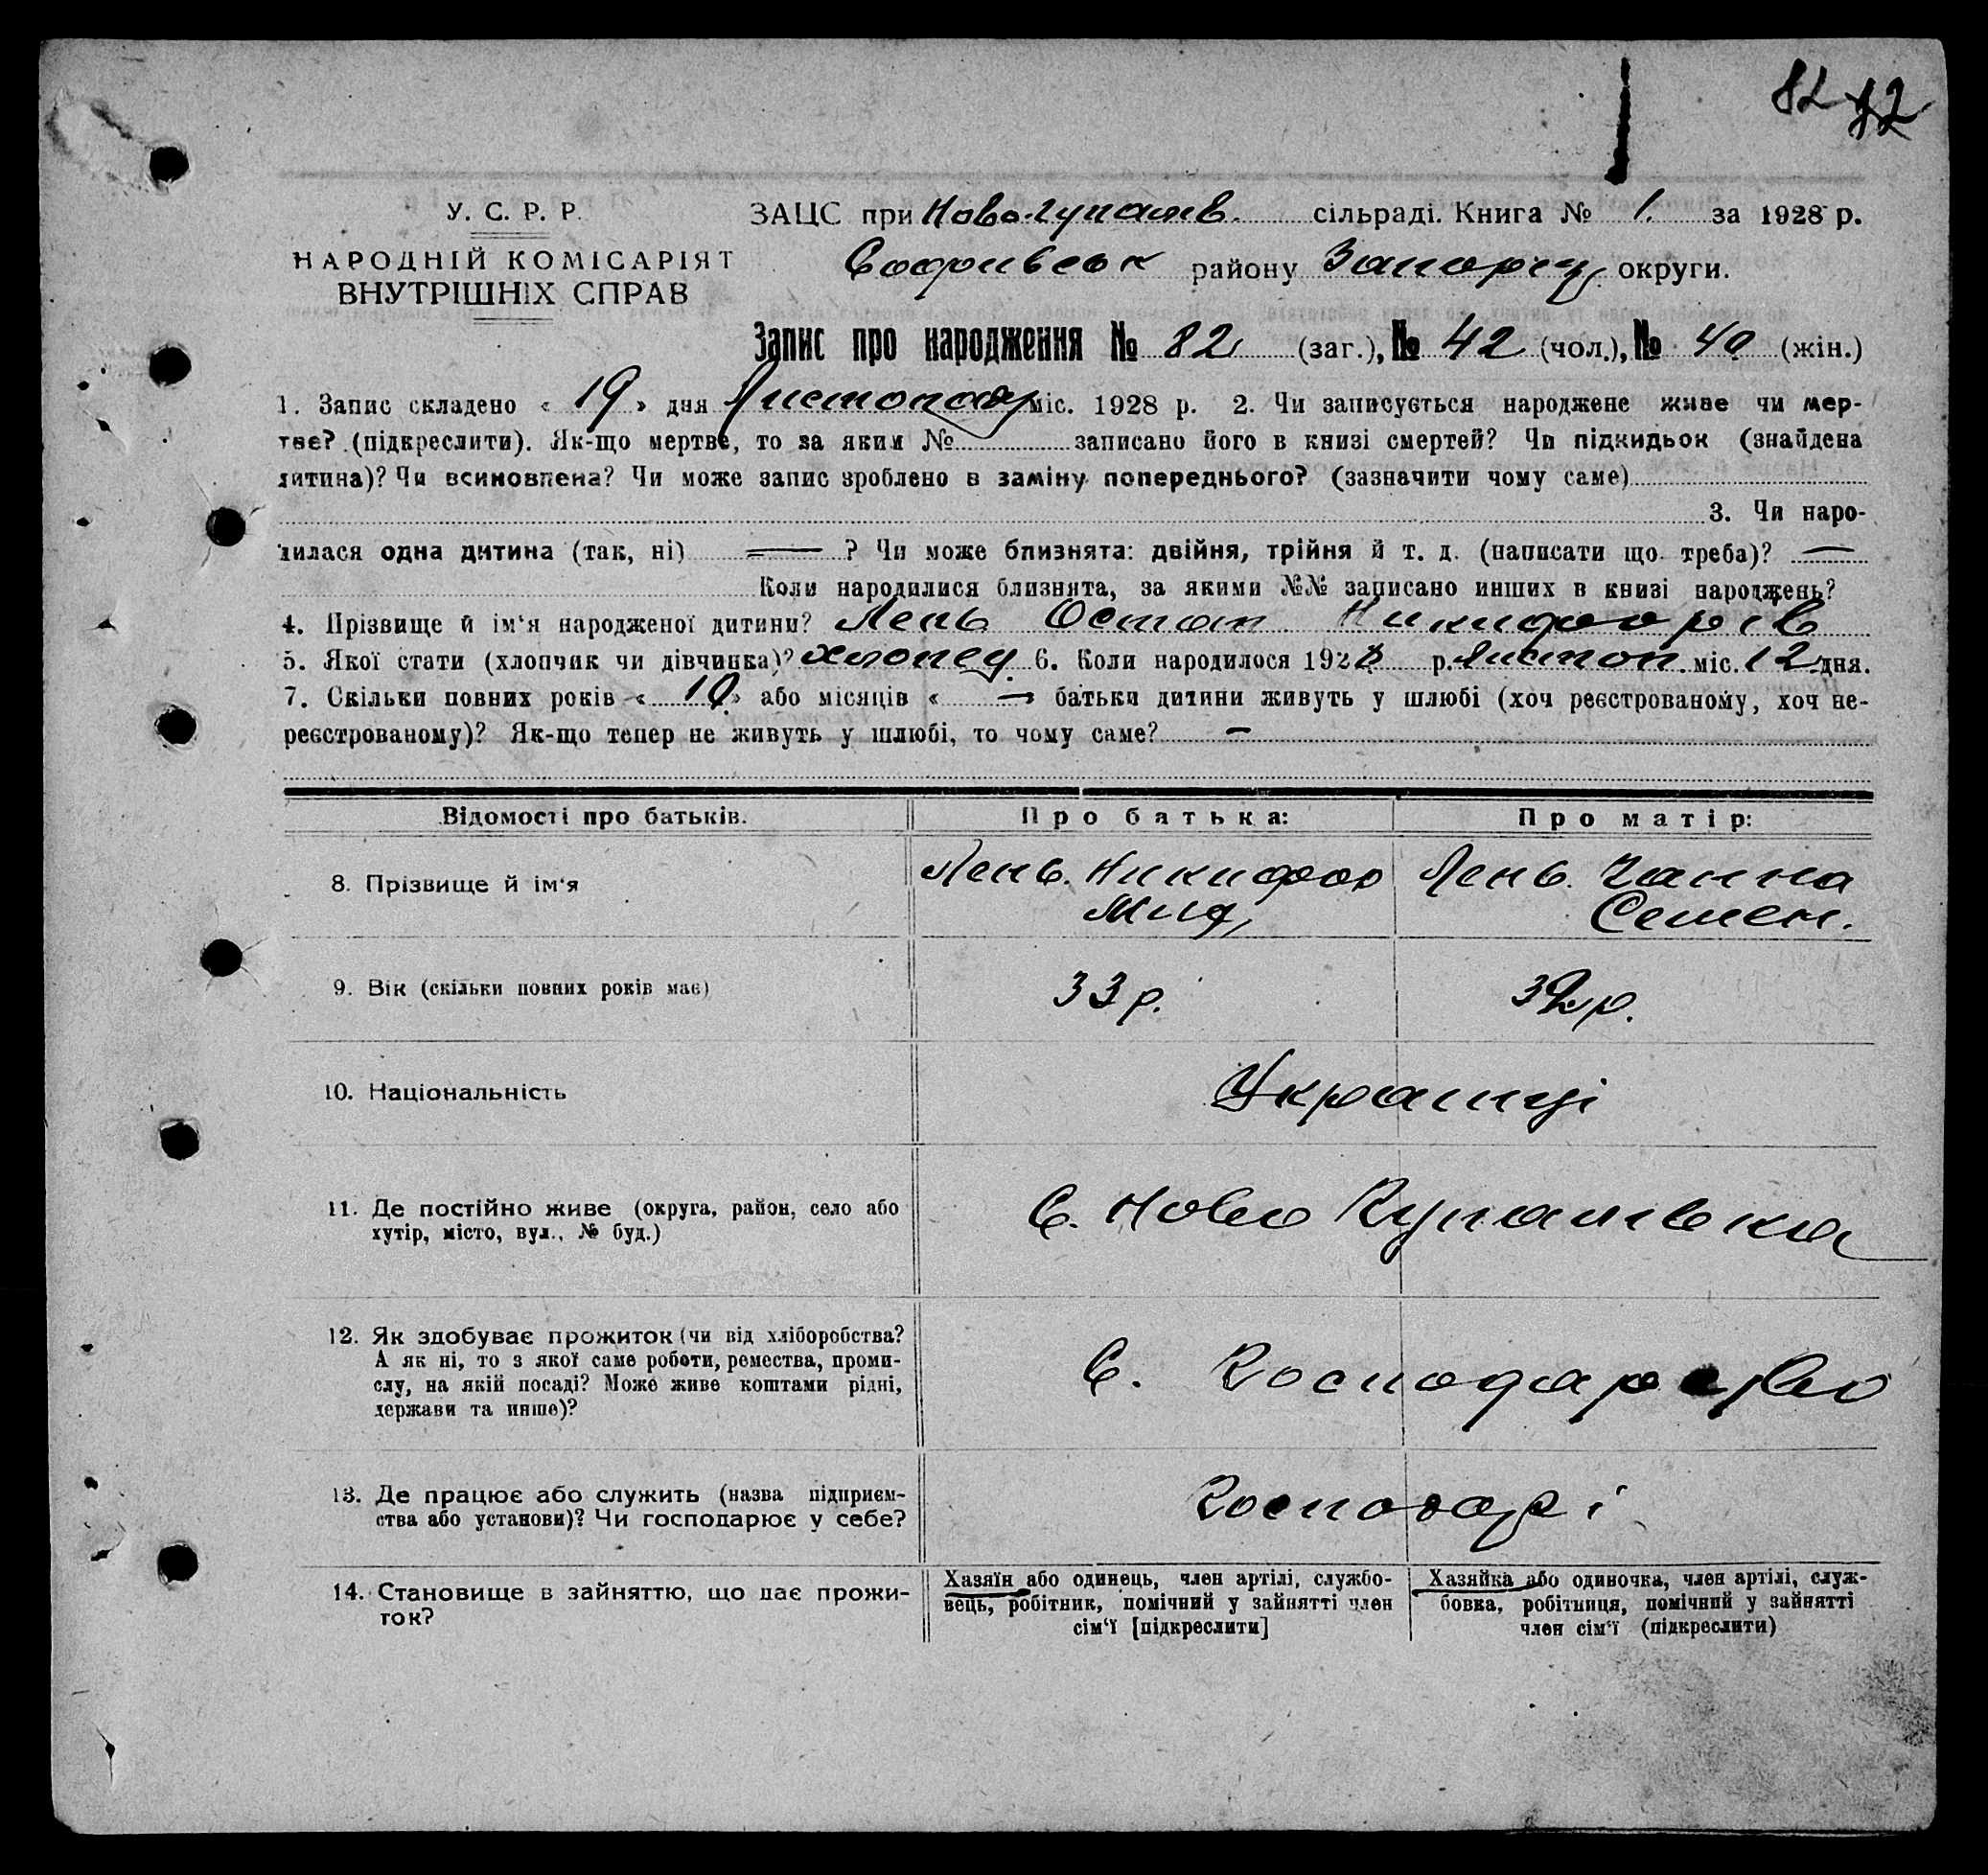 82 82
У. С. Р. Р.
НАРОДНІЙ КОМІСАРІЯТ
ВНУТРІШНІХ СПРАВ
ЗАЦС при Ново-Гупалів. сільраді. Книга № 1. за 1928 р.
Софиївськ району Запоріц. округи.
Запис про народження № 82 (заг.), № 42 (чол.), № 40 (жін.)
1. Запис складено « 19 » дня Листопаду міс. 1928 р. 2. Чи записується народжене живе чи мер-
тве? (підкреслити). Як-що мертве, то за яким № записано його в книзі смертей? Чи підкидьок (знайдена
дитина)? Чи всиновлена? Чи може запис зроблено в заміну попереднього? (зазначити чому саме)
3. Чи наро-
дилася одна дитина (так, ні) — ? Чи може близнята: двійня, трійня й т. д. (написати що треба)? —
Коли народилися близнята, за якими №№ записано инших в книзі народжень?
4. Прізвище й ім'я народженої дитини? Лень Остап Никифорів
5. Якої стати (хлопчик чи дівчинка)? Хлопец. 6. Коли народилося 1928 р. Листоп. міс. 12 дня.
7. Скільки повних років « 10 » або місяців « — » батьки дитини живуть у шлюбі (хоч реєстрованому, хоч не-
реєстрованому)? Як-що тепер не живуть у шлюбі, то чому саме? —
Відомості про батьків. Про батька: Про матір:
8. Прізвище й ім'я Лень. Никифор Лень. Ганна
Семен.
9. Вік (скільки повних років має) 33 р. 32 р.
10. Національність Українці
11. Де постійно живе (округа, район, село або
хутір, місто, вул., № буд.) С. Ново Гупалівка
12. Як здобуває прожиток (чи від хліборобства?
А як ні, то з якої саме роботи, ремества, проми-
слу, на якій посаді? Може живе коштами рідні,
держави та инше)? С. Господарство
13. Де працює або служить (назва підприєм-
ства або установи)? Чи господарює у себе? Господарі
14. Становище в зайняттю, що дає прожи-
ток?
Хазяїн або одинець, член артілі, службо-
вець, робітник, помічний у зайнятті член
сім'ї [підкреслити]
Хазяйка або одиночка, член артілі, служ-
бовка, робітниця, помічний у зайнятті
член сім'ї (підкреслити)